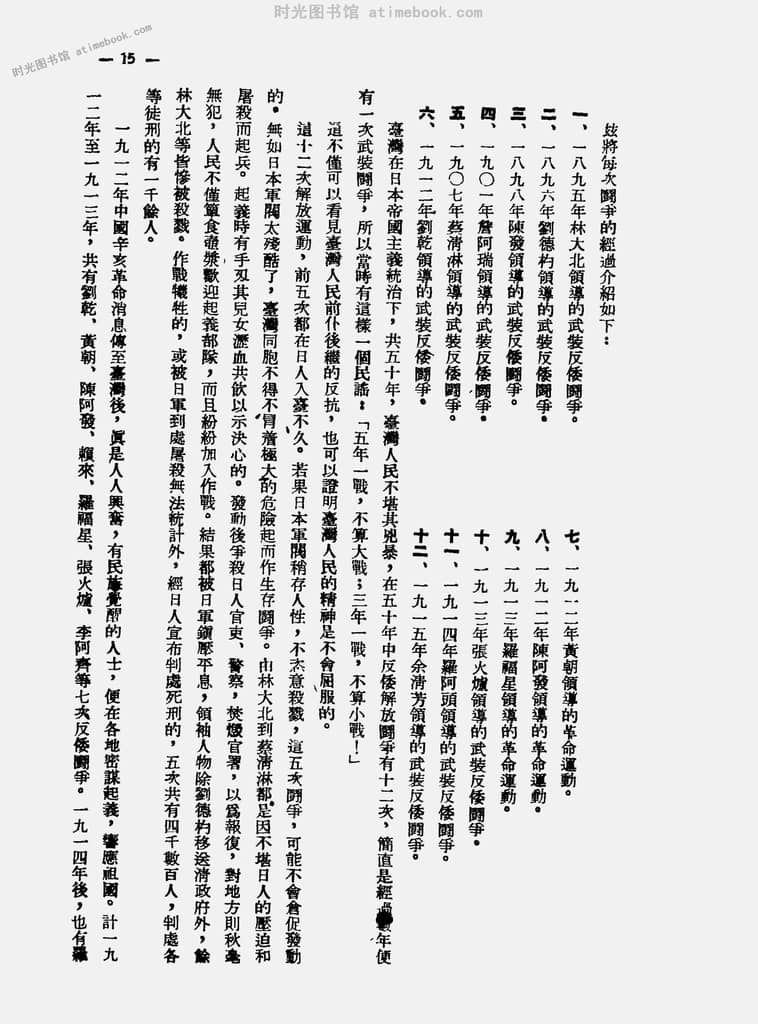 时光图书馆 atimebook.com
时光图书馆 atimebook.com
— 15 —
玆將每次鬪爭的經過介紹如下：
一、一八九五年林大北領導的武裝反倭鬪爭。
二、一八九六年劉德杓領導的武裝反倭鬪爭。
三、一八九八年陳發領導的武裝反倭鬪爭。
四、一九〇一年詹阿瑞領導的武裝反倭鬪爭。
五、一九〇七年蔡淸淋領導的武裝反倭鬪爭。
六、一九一二年劉乾領導的武裝反倭鬪爭。
七、一九一二年黃朝領導的革命運動。
八、一九一二年陳阿發領導的革命運動。
九、一九一三年羅福星領導的革命運動。
十、一九一三年張火爐領導的武裝反倭鬪爭。
十一、一九一四年羅阿頭領導的武裝反倭鬪爭。
十二、一九一五年余淸芳領導的武裝反倭鬪爭。
臺灣在日本帝國主義統治下，共五十年，臺灣人民不堪其兇暴，在五十年中反倭解放鬪爭有十二次，簡直是經過數年便
有一次武裝鬪爭，所以當時有這樣一個民謠：「五年一戰，不算大戰；三年一戰，不算小戰！」
這不僅可以看見臺灣人民前仆後繼的反抗，也可以證明臺灣人民的精神是不會屈服的。
這十二次解放運動，前五次都在日人入臺不久。若果日本軍閥稍存人性，不恣意殺戮，這五次鬪爭，可能不會倉促發動
的。無如日本軍閥太殘酷了，臺灣同胞不得不冒着極大的危險起而作生存鬪爭。由林大北到蔡淸淋都是因不堪日人的壓迫和
屠殺而起兵。起義時有手刄其兒女瀝血共飮以示決心的。發動後爭殺日人官吏、警察，焚燬官署，以爲報復，對地方則秋毫
無犯，人民不僅簞食壺漿歡迎起義部隊，而且紛紛加入作戰。結果都被日軍鎭壓平息，領袖人物除劉德杓移送淸政府外，餘
林大北等皆慘被殺戮。作戰犧牲的，或被日軍到處屠殺無法統計外，經日人宣布判處死刑的，五次共有四千數百人，判處各
等徒刑的有一千餘人。
一九一二年中國辛亥革命消息傳至臺灣後，眞是人人興奮，有民族覺醒的人士，便在各地密謀起義，響應祖國。計一九
一二年至一九一三年，共有劉乾、黃朝、陳阿發、賴來、羅福星、張火爐、李阿齊等七次反倭鬪爭。一九一四年後，也有羅